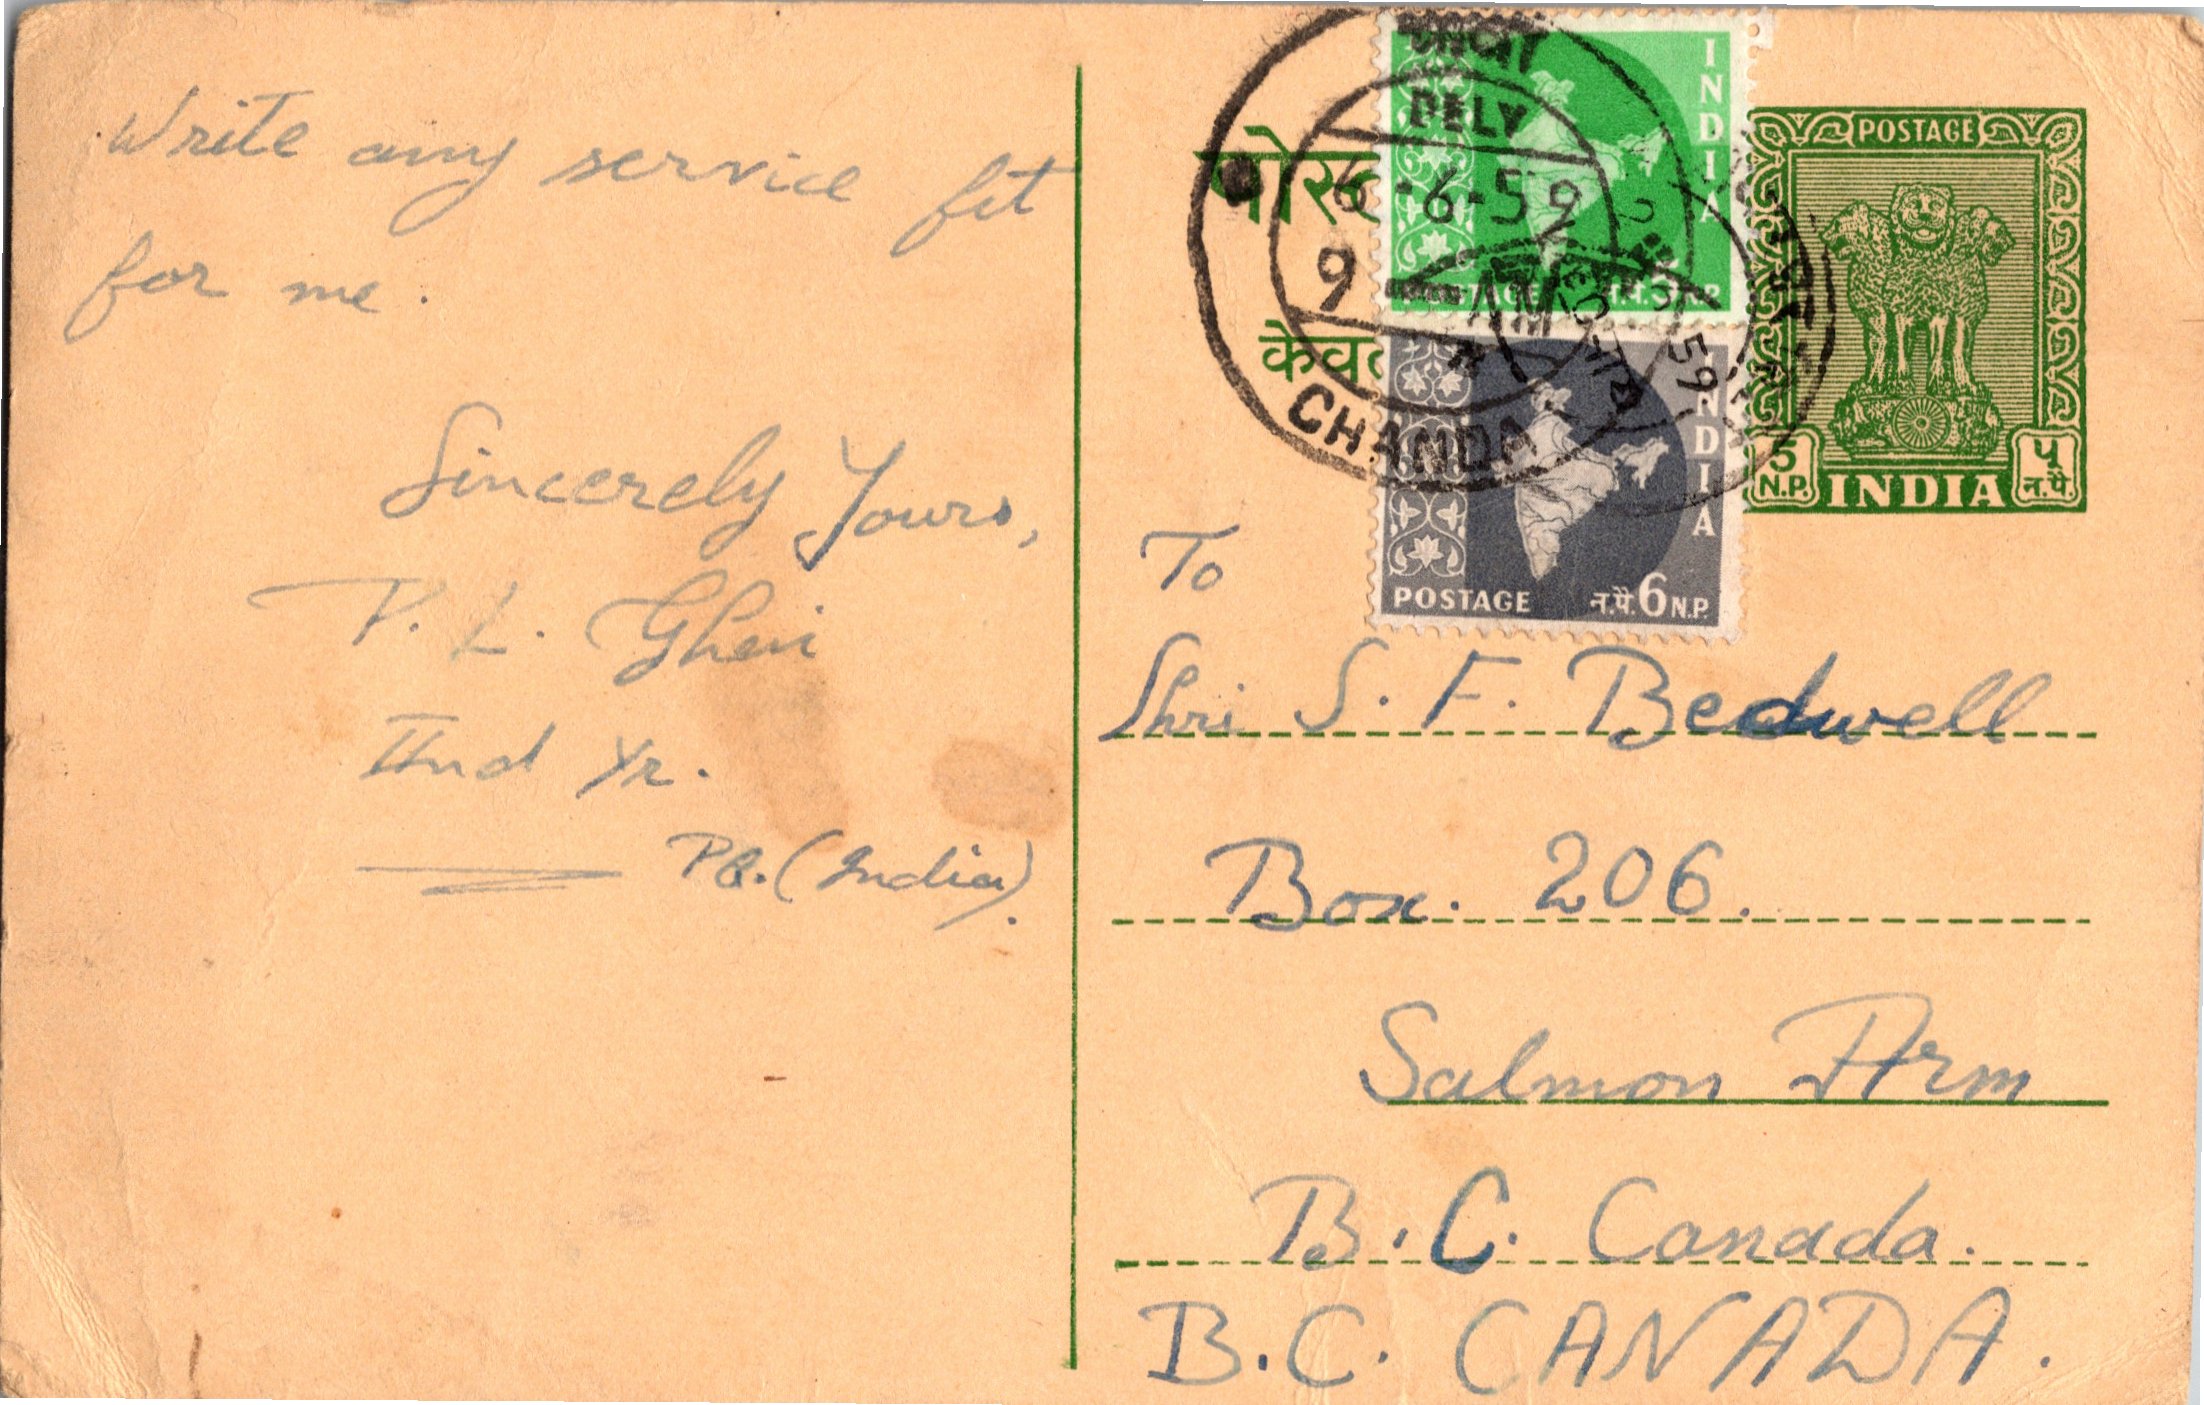 Write any service fit
for me.
Sincerely Yours,
P. L. Gheri
IInd Yr.
Pb. (India).
पोस्ट
केवल
चान्दा
DELY
6 -6-59
9 - AM
CHANDA
INDIA
POSTAGE न.पै. 3 N.P.
INDIA
POSTAGE न.पै. 6 N.P.
POSTAGE
5 N.P. INDIA ५ न.पै.
To
Shri S. F. Bedwell
Box. 206.
Salmon Arm
B.C. Canada.
B.C. CANADA.